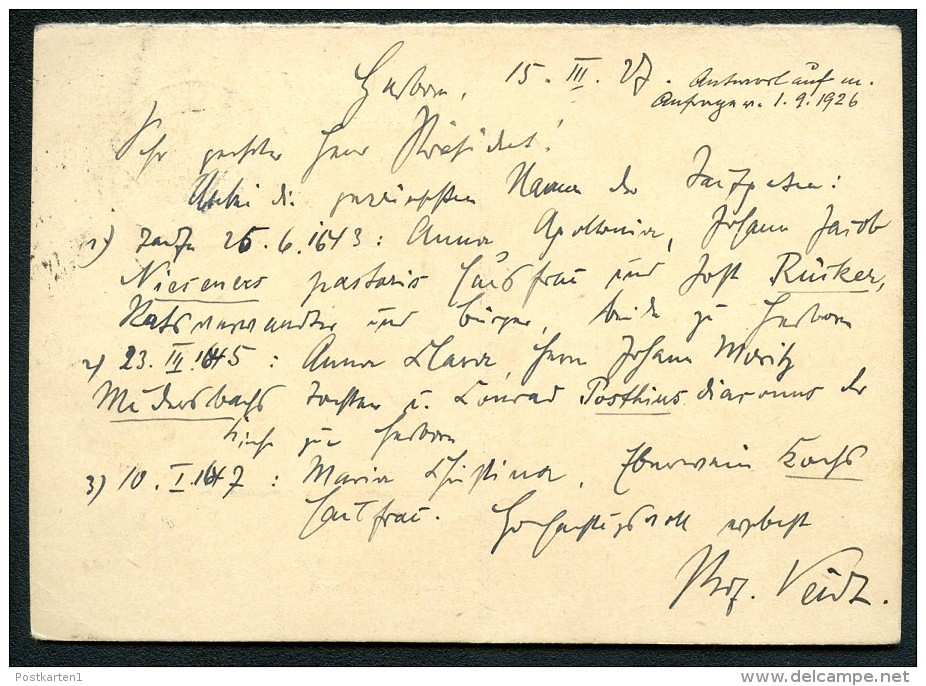 Herborn, 15. III. 27. Antwort auf m.
Anfrage v. 1.9.1926
Sehr geehrter Herr Präsident!
Anbei die gewünschten Namen der Taufpaten:
1) Taufe 25.6.1643: Anna Apollonia, Johann Jacob
Nieseners pastoris Hausfrau und Jost Rücker,
Ratsverwandter und Bürger, beide zu Herborn
2) 23. III. 1645: Anna Clara, Herrn Johann Moritz
Müdersbachs Tochter u. Conrad Posthius diaconus der
Kirche zu Herborn
3) 10. I. 1647: Maria Christina, Eberwein Kochs
Hausfrau. Hochachtungsvoll ergebenst
Prof. Veidt.
Postkarten1
delcampe.net